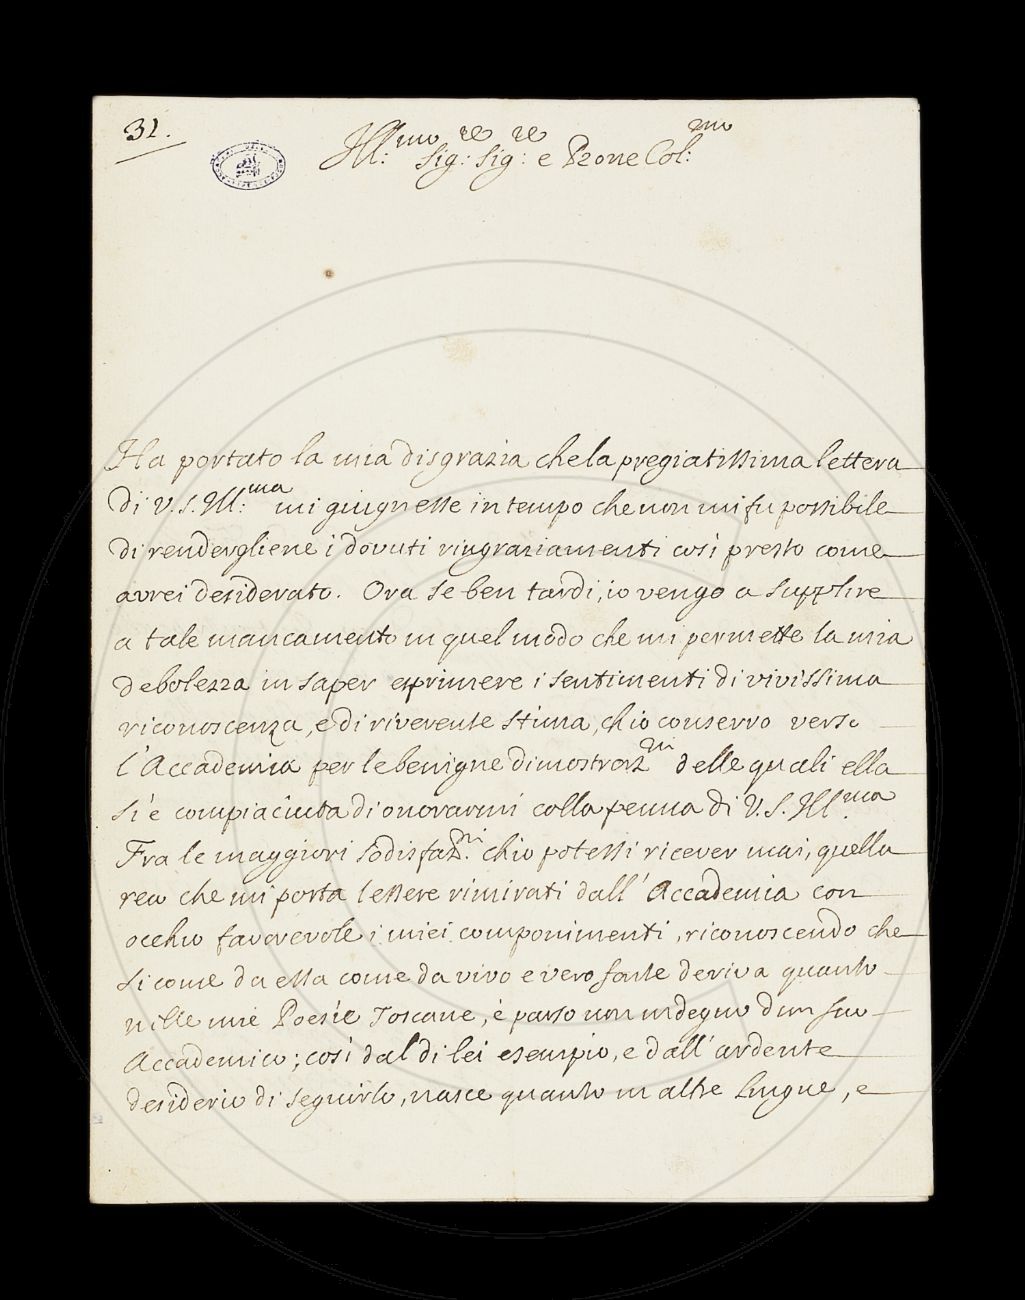 31.
Ill:mo Sig:re Sig:re e Prone Col:mo
Ha portato la mia disgrazia che la pregiatissima lettera
di V.S. Ill:ma mi giugnesse in tempo che non mi fu possibile
di rendergliene i dovuti ringraziamenti così presto come
avrei desiderato. Ora se ben tardi, io vengo a supplire
a tale mancamento in quel modo che mi permette la mia
debolezza in saper esprimere i sentimenti di vivissima
riconoscenza, e di riverente stima, ch'io conservo verso
l'Accademia per le benigne dimostraz.ni delle quali ella
si è compiaciuta di onorarmi colla penna di V.S. Ill.ma
Fra le maggiori sodisfaz.ni ch'io potessi ricever mai, quella
che mi porta l'essere rimirati dall'Accademia con
occhio favorevole i miei componimenti, riconoscendo che
si come da essa come da vivo e vero fonte deriva quanto
nelle mie Poesie Toscane, è parso non indegno d'un suo
Accademico; così dal di lei esempio, e dall'ardente
desiderio di seguirlo, nasce quanto in altre lingue, e